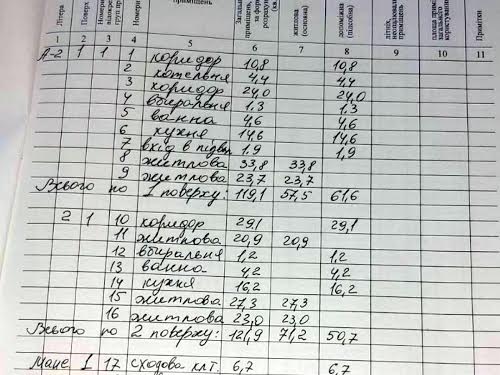 Літера Поверх Номери приміщень Загальна житлова (основна) допоміжна (підсобна) літніх, площа загального користування Примітки
1 2 3 4 5 6 7 8 9 10 11
А-2 1 1 1 коридор 10,8 10,8
2 котельня 4,4 4,4
3 коридор 24,0 24,0
4 вбиральня 1,3 1,3
5 ванна 4,6 4,6
6 кухня 14,6 14,6
7 вхід в підвал 1,9 1,9
8 житлова 33,8 33,8
9 житлова 23,7 23,7
Всього по 1 поверху: 119,1 57,5 61,6
2 1 10 коридор 29,1 29,1
11 житлова 20,9 20,9
12 вбиральня 1,2 1,2
13 ванна 4,2 4,2
14 кухня 16,2 16,2
15 житлова 27,3 27,3
16 житлова 23,0 23,0
Всього по 2 поверху: 121,9 71,2 50,7
Манс 1 17 сходова клт. 6,7 6,7